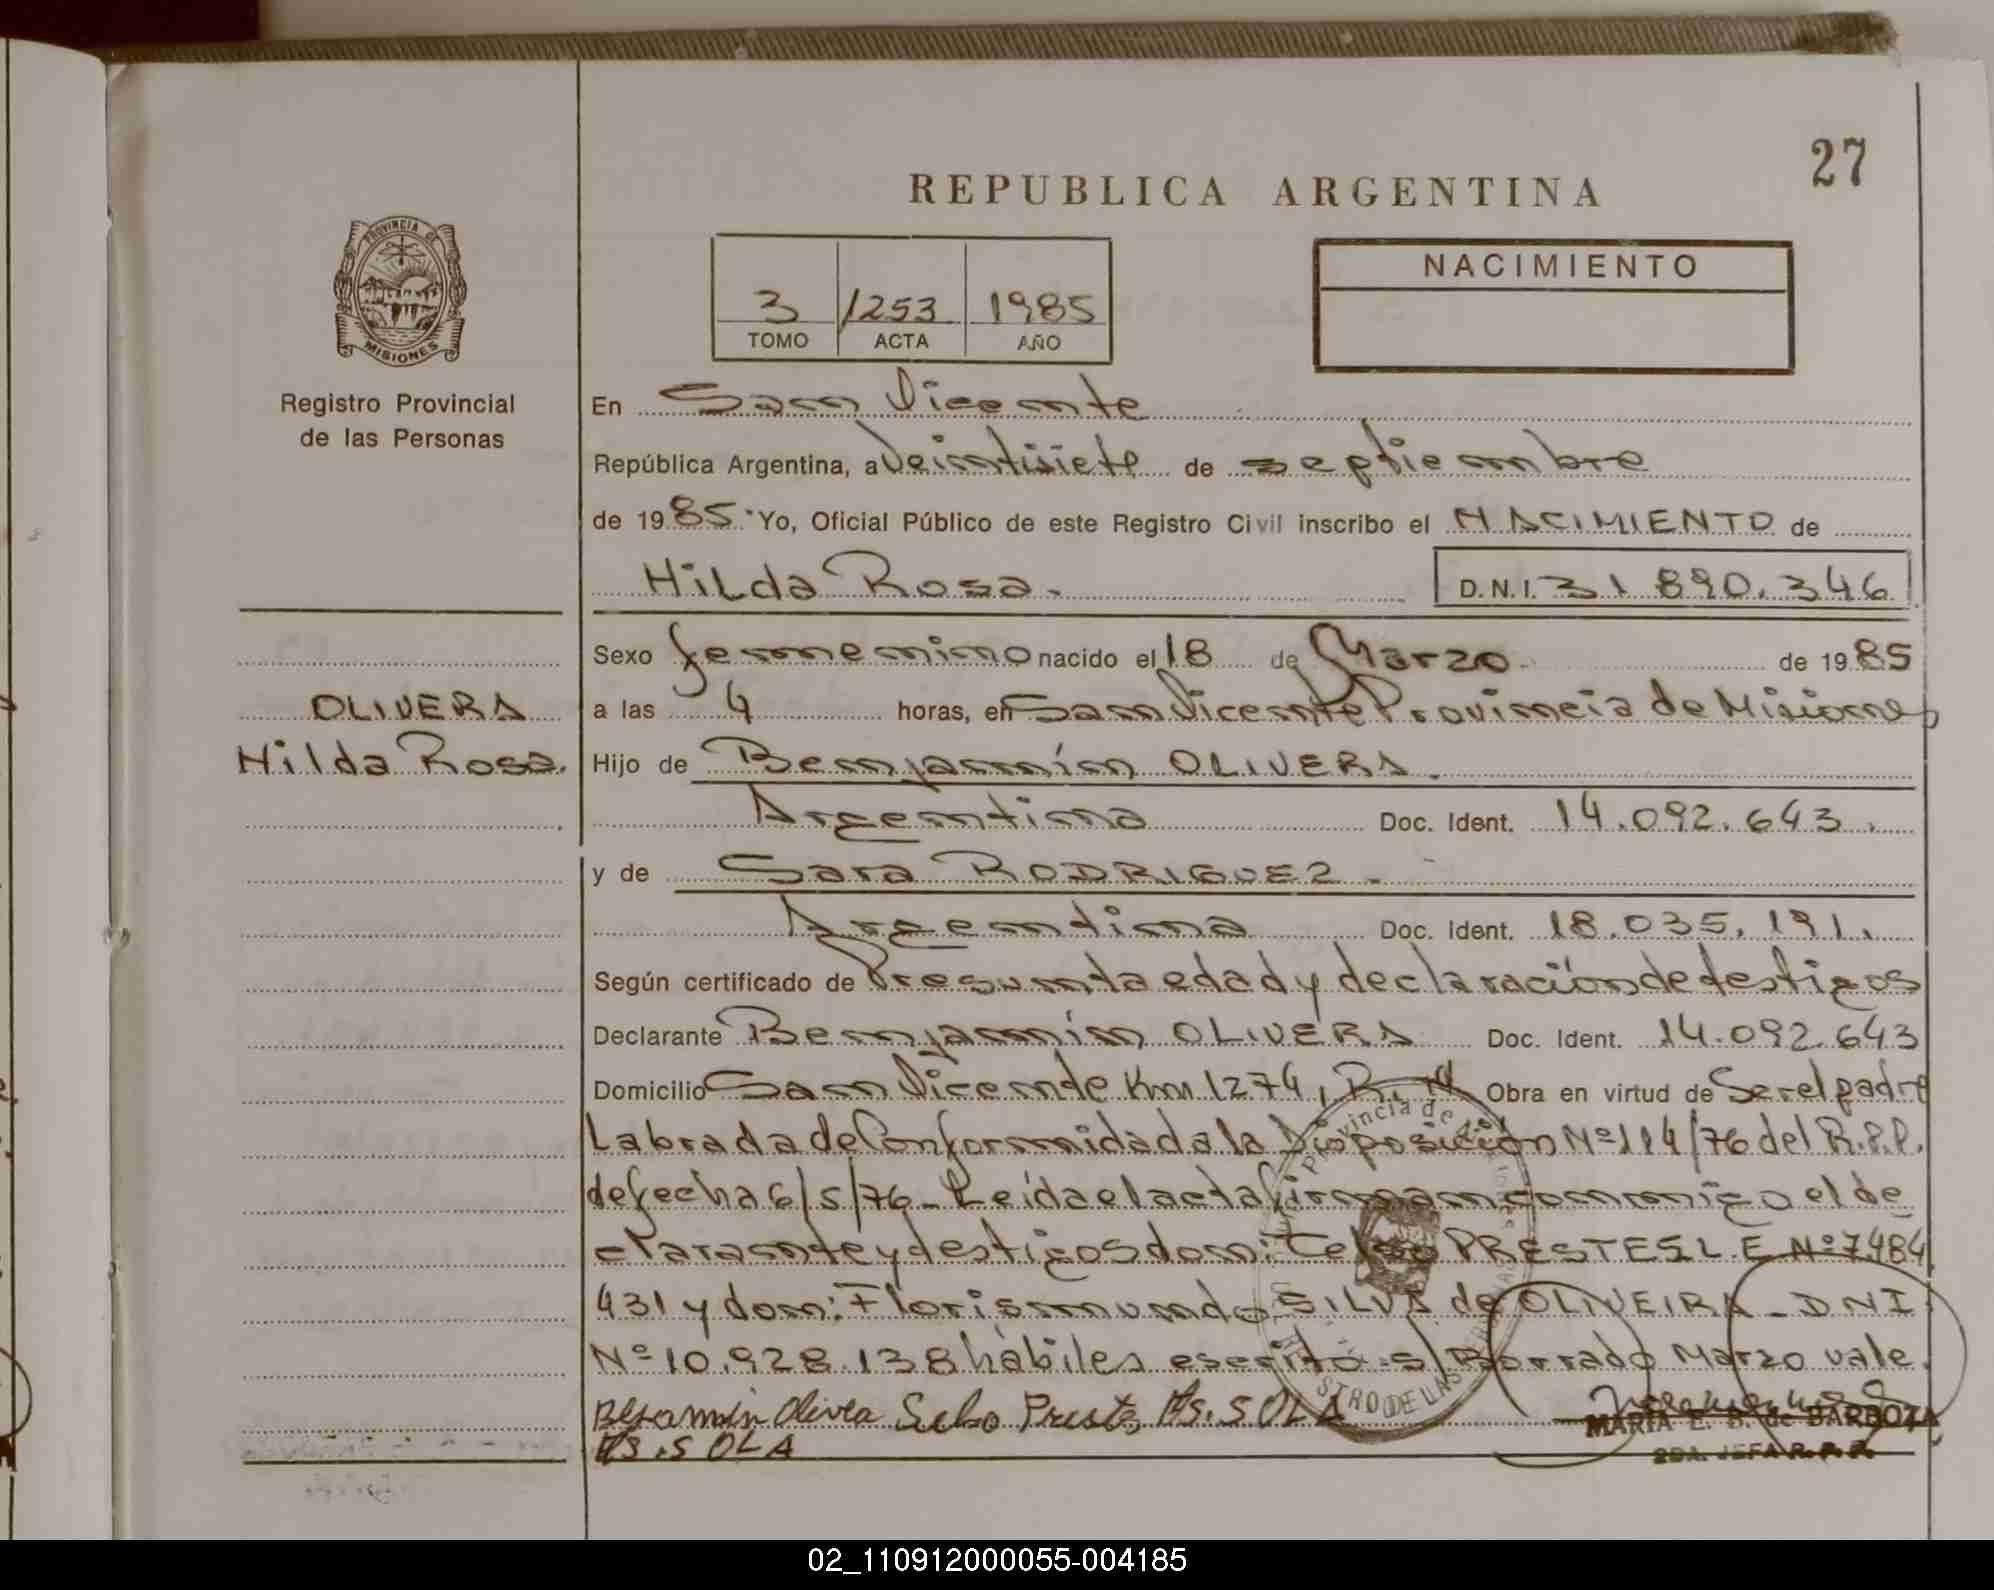 27
REPUBLICA ARGENTINA
PROVINCIA DE
MISIONES
Registro Provincial
de las Personas
3 1253 1985
TOMO ACTA AÑO
NACIMIENTO
En San Vicente
República Argentina, a Veintisiete de septiembre
de 1985. Yo, Oficial Público de este Registro Civil inscribo el NACIMIENTO de
Hilda Rosa.
D.N.I. 31.890.346
OLIVERA
Hilda Rosa.
Sexo femenino nacido el 18 de Marzo de 1985
a las 4 horas, en San Vicente Provincia de Misiones
Hijo de Benjamín OLIVERA.
Argentina Doc. Ident. 14.092.643.
y de Sara RODRIGUEZ.
Argentina Doc. Ident. 18.035.191.
Según certificado de Presunta edad y declaración de testigos
Declarante Benjamín OLIVERA Doc. Ident. 14.092.643
Domicilio San Vicente Km 1274, R. N Obra en virtud de Ser el padre
Labrada de Conformidad a la Disposición Nº 114/76 del R.P.P.
de fecha 6/5/76_ Leída el acta firman conmigo el de
clarante y testigos don: Celso PRESTES L.E Nº 7.484
431 y don: Florismundo SILVA de OLIVEIRA_DNI
Nº 10.928.138 hábiles escrito s/ Borrado Marzo vale.
Benjamin Olivera Selso Prestes As. SOLA
As. SOLA
MARIA E. B. de BARBOZA
2DA. JEFA R.P.P.
02_110912000055-004185